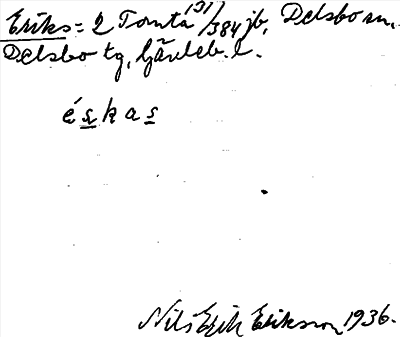 Eriks = 2 Tomta 151/384 jb, Delsbo sn,
Delsbo tg, Gävleb. l.
éskas
Nils Erik Eriksson 1936.